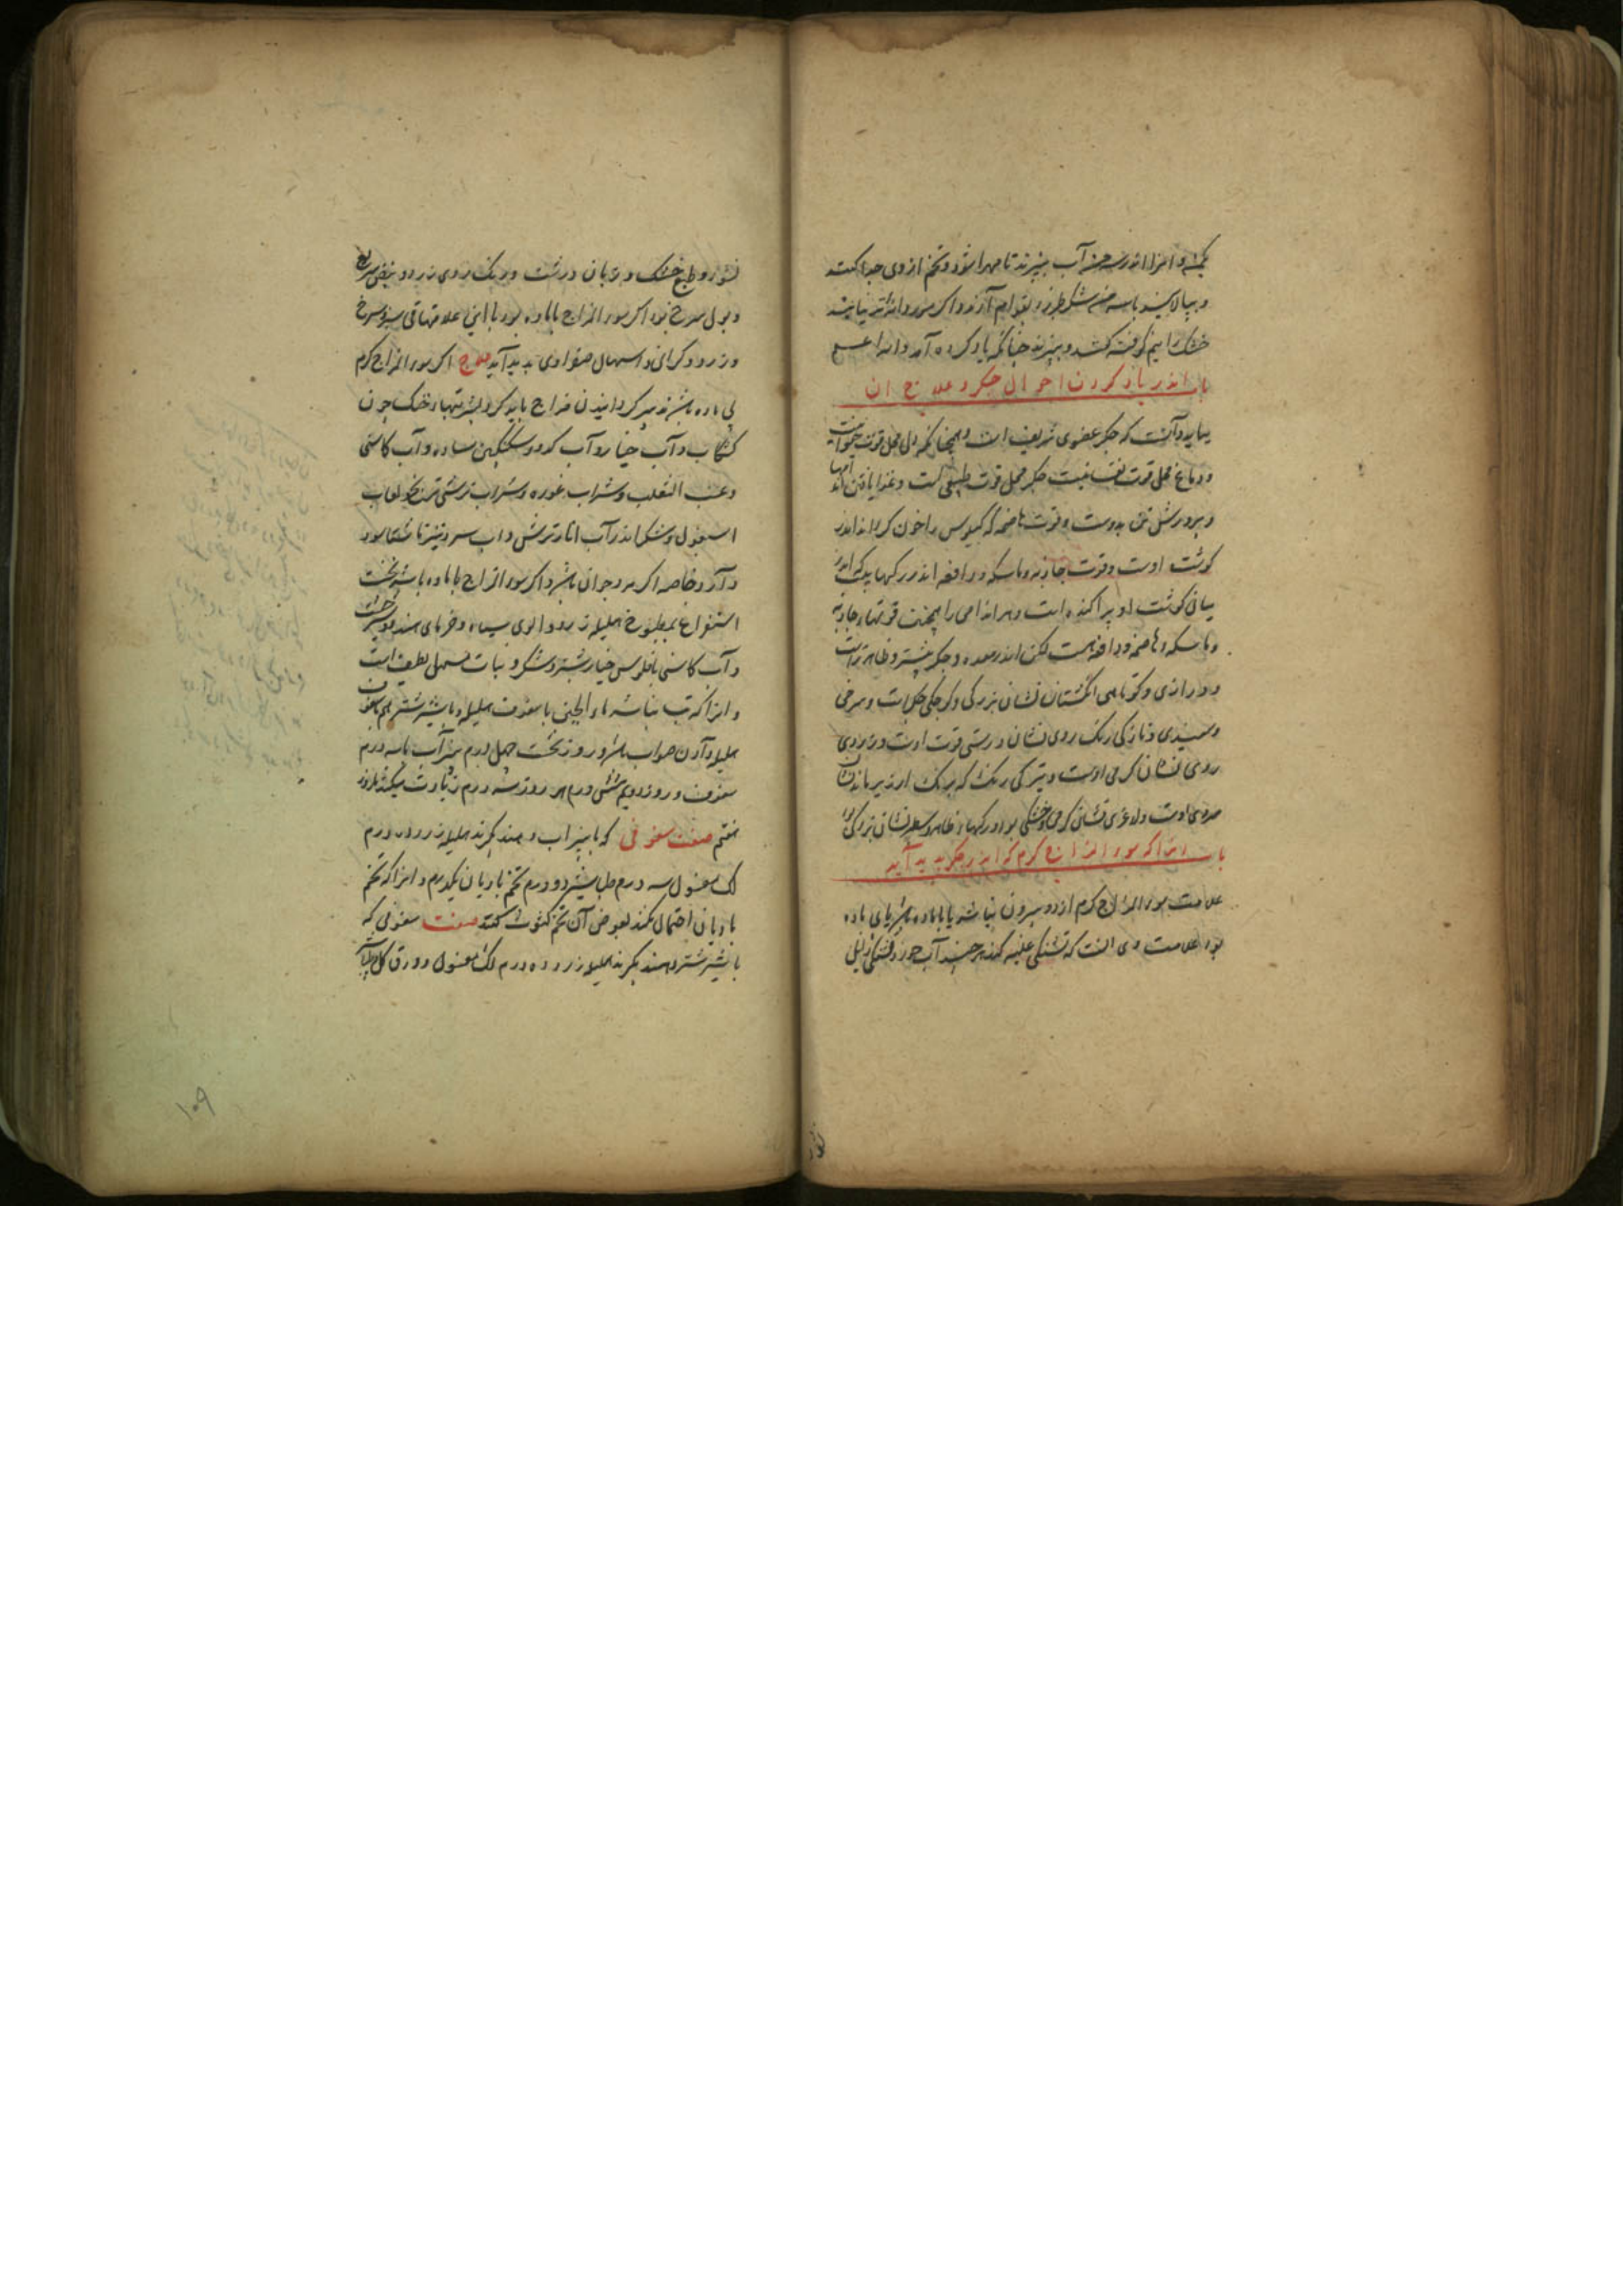 یکشبه و انرا اندر سه من آب بپزند تا مهرا شود و تخم ازوی جدا کنند
و بپالایند با سه من شکر طبرزد بقوام آرند و اگر مورد دانه تر نیابند
خشک را نیم کوفته کنند و بپزند چنانکه یاد کرده آمد والله اعلم
باب اندر یاد کردن احوال جگر و علاج ان
بباید دانست که جگر عضوی شریف است و همچنانکه دل محل قوت حیوانیت
و دماغ محل قوت نفسانیت جگر محل قوت طبیعی است و غذا یافتن اندامها
و پرورش تن بدوست و قوت هاضمه که کیلوس را خون گرداند اندر
گوشت اوست و قوت جاذبه و ماسکه و دافعه اندر رگهای که اندر
میان گوشت او پراکنده است و هر اندامی را همچنین قوتهای جاذبه
و ماسکه و هاضمه و دافعه هست لکن اندر معده و جگر بیشتر و ظاهرترست
و درازی و کوتاهی انگشتان نشان بزرگی و کوچکی جگرست و سرخی
و سپیدی و تازگی رنگ روی نشان درستی قوت اوست و زردی
روی نشان گرمی اوست و تیرگی رنگ که برنگ ارزیر ماند نشان
سردی اوست و لاغری نشان گرمی و خشکی بود و رگهاء ظاهر و سطبر نشان بزرگی بود
باب انرا که سوء المزاج گرم که اندر جگر پدید آید
علامت سوء المزاج گرم از دو بیرون نباشد یا با ماده باشد یا بی ماده
بود علامت وی انست که تشنگی غلبه کند هر چند آب خورد تشنگی زایل
نشود و طبع خشک و زبان درشت و رنگ روی زرد و نبض سریع
و بول سرخ بود اگر سوء المزاج با ماده بود با این علامتها قی سبز و سرخ
و زرد و گرانی و اسهال صفراوی پدید آید علاج اگر سوء المزاج گرم
بی ماده باشد تدبیر گردانیدن مزاج باید کرد بشربتهاء خنک چون
کشکاب و آب خیار و آب کدو و سکنگبین ساده و آب کاسنی
و عنب الثعلب و شراب غوره و شراب ترشی ترنج و لعاب
اسبغول و شکر اندر آب انار ترش و آب سرد نیز ناشتا سود
دارد خاصه اگر مرد جوان باشد و اگر سوء المزاج با ماده باشد نخست
استفراغ بمطبوخ هلیله زرد و الوی سیاه و خرمای هندو و شیرخشت
و آب کاسنی با فلوس خیارشنبر و شکر و نبات مسهل لطیف است
و انرا که تب نباشد ماء الجبن با سفوف هلیله و با شیر شتر هم با سفوف
هلیله دادن صواب باشد و روز نخست چهل درم پنیر آب با سه درم
سفوف و روز دویم شش درم هر روز سه درم زیادت میکند تا روز
هفتم صفت سفوفی که با پنیراب دهند بگیرند هلیله زرد ده درم
لک مغسول سه درم طباشیر دو درم تخم بادیان یکدرم و انرا که تخم
بادیان احتمال نکند بعوض آن تخم کثوث کنند صفت سفوفی که
با شیر شتر دهند بگیرند هلیله زرد ده درم لک مغسول و ورق گل
۱۰۹